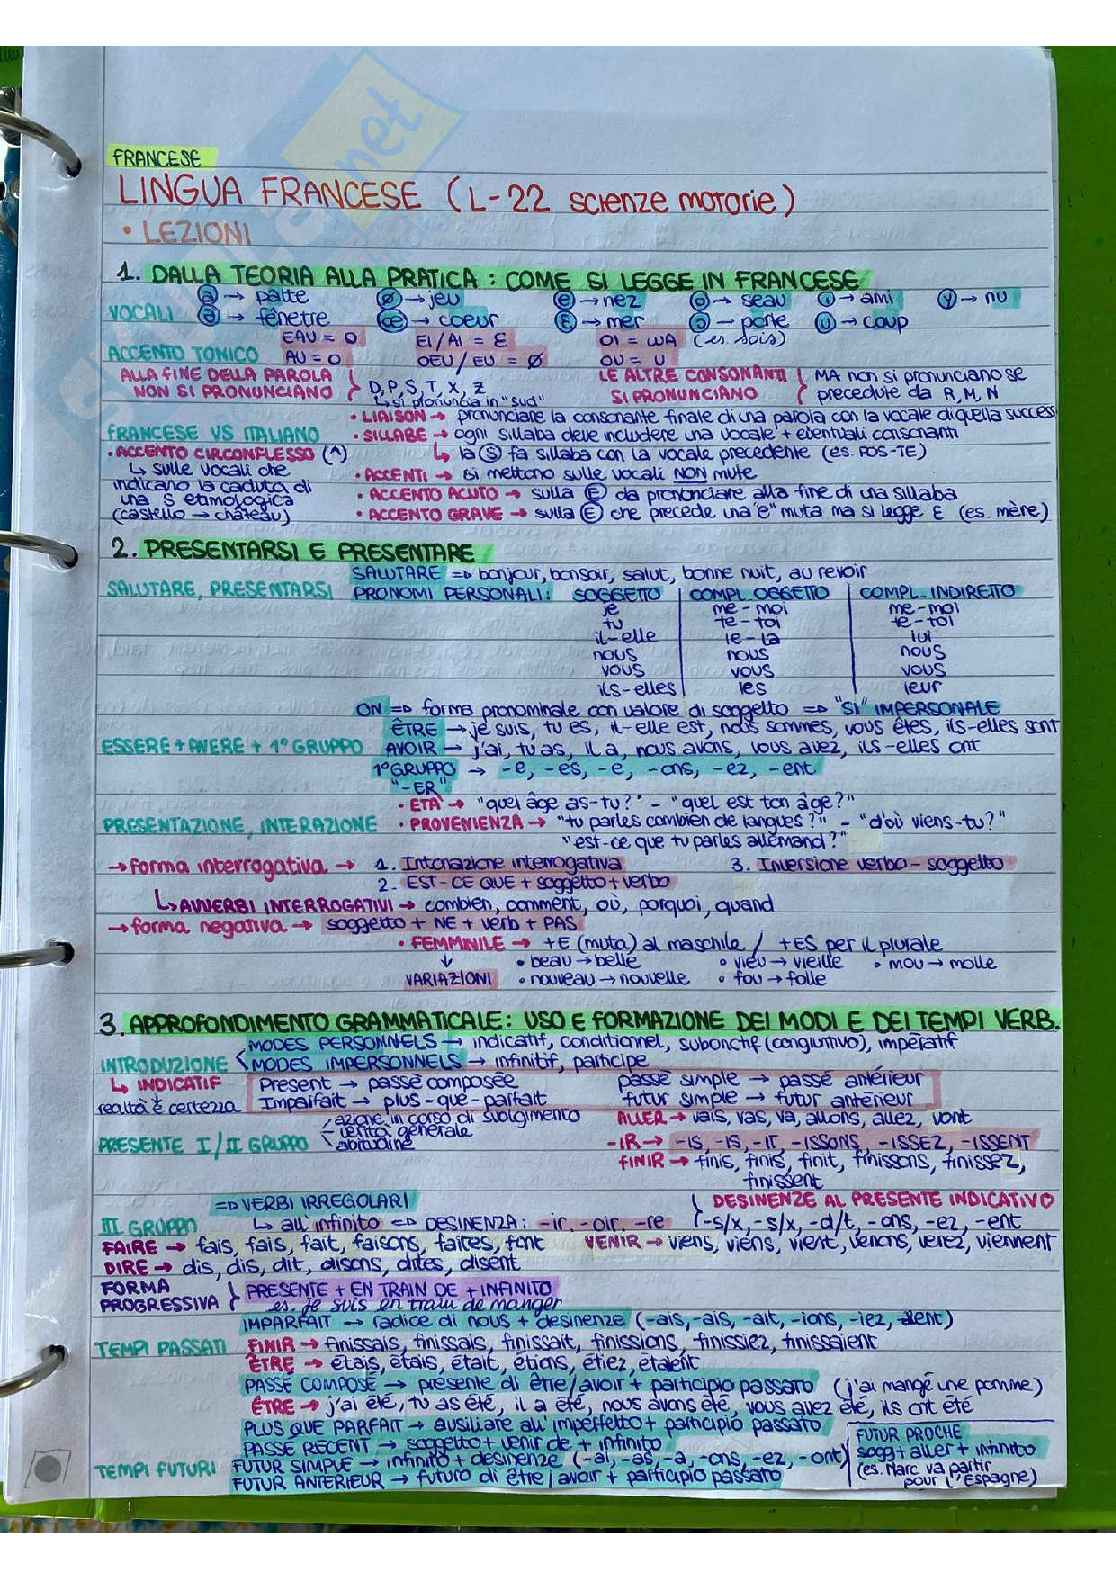 FRANCESE
LINGUA FRANCESE (L-22 scienze motorie)
• LEZIONI
1. DALLA TEORIA ALLA PRATICA : COME SI LEGGE IN FRANCESE
VOCALI
ⓐ → patte ø → jeu ⓔ → nez ⓞ → seau ⓘ → ami ⓨ → nu
→ fenetre œ → coeur ɛ → mer ɔ → porte ⓤ → coup
ACCENTO TONICO
EAU = O EI/AI = ɛ OI = WA (es. sois)
AU = O OEU/EU = ø OU = U
ALLA FINE DELLA PAROLA NON SI PRONUNCIANO } D, P, S, T, X, Z
↳ si pronuncia in "sud"
LE ALTRE CONSONANTI SI PRONUNCIANO } MA non si pronunciano se precedute da R, M, N
FRANCESE VS ITALIANO
• LIAISON → pronunciare la consonante finale di una parola con la vocale di quella success
• SILLABE → ogni sillaba deve includere una vocale + eventuali consonanti
↳ la Ⓢ fa sillaba con la vocale precedente (es. POS-TE)
• ACCENTO CIRCONFLESSO (^)
↳ sulle vocali che
indicano la caduta di
una S etimologica
(castello → château)
• ACCENTI → si mettono sulle vocali NON mute
• ACCENTO ACUTO → sulla Ⓔ da pronunciare alla fine di una sillaba
• ACCENTO GRAVE → sulla Ⓔ che precede una "e" muta ma si legge ɛ (es. mère)
2. PRESENTARSI E PRESENTARE
SALUTARE, PRESENTARSI
SALUTARE => bonjour, bonsoir, salut, bonne nuit, au revoir
PRONOMI PERSONALI: SOGGETTO | COMPL. OGGETTO | COMPL. INDIRETTO
je me - moi me - moi
tu te - toi te - toi
il - elle le - la lui
nous nous nous
vous vous vous
ils - elles les leur
ON => forma pronominale con valore di soggetto => "SI" IMPERSONALE
ESSERE + AVERE + 1° GRUPPO
ÊTRE → je suis, tu es, il-elle est, nous sommes, vous êtes, ils-elles sont
AVOIR → j'ai, tu as, il a, nous avons, vous avez, ils-elles ont
1° GRUPPO → -e, -es, -e, -ons, -ez, -ent
"-ER"
PRESENTAZIONE, INTERAZIONE
• ETÀ → "quel âge as-tu?" - "quel est ton âge?"
• PROVENIENZA → "tu parles combien de langues?" - "d'où viens-tu?"
"est-ce que tu parles allemand?"
→ forma interrogativa → 1. Intonazione interrogativa 3. Inversione verbo - soggetto
2. EST-CE QUE + soggetto + verbo
↳ AVVERBI INTERROGATIVI → combien, comment, où, porquoi, quand
→ forma negativa → soggetto + NE + verb + PAS
• FEMMINILE → +E (muta) al maschile / +ES per il plurale
↓
VARIAZIONI
• beau → belle • vieu → vieille • mou → molle
• nouveau → nouvelle • fou → folle
3. APPROFONDIMENTO GRAMMATICALE: USO E FORMAZIONE DEI MODI E DEI TEMPI VERB.
INTRODUZIONE
MODES PERSONNELS → indicatif, conditionnel, subonctif (congiuntivo), impératif
MODES IMPERSONNELS → infinitif, participe
↳ INDICATIF
realtà e certezza
Present → passé composée passé simple → passé antérieur
Imparfait → plus-que-parfait futur simple → futur antérieur
PRESENTE I / II GRUPPO
- azione in corso di svolgimento
- verità generale
- abitudine
ALLER → vais, vas, va, allons, allez, vont
-IR → -IS, -IS, -IT, -ISSONS, -ISSEZ, -ISSENT
FINIR → finis, finis, finit, finissons, finissez,
finissent
III GRUPPO
=> VERBI IRREGOLARI
↳ all'infinito => DESINENZA: -ir, -oir, -re
DESINENZE AL PRESENTE INDICATIVO
-s/x, -s/x, -d/t, -ons, -ez, -ent
FAIRE → fais, fais, fait, faisons, faites, font VENIR → viens, viens, vient, venons, venez, viennent
DIRE → dis, dis, dit, disons, dites, disent
FORMA PROGRESSIVA } PRESENTE + EN TRAIN DE + INFINITO
es. je suis en train de manger
TEMPI PASSATI
IMPARFAIT → radice di nous + desinenze (-ais, -ais, -ait, -ions, -iez, -aient)
FINIR → finissais, finissais, finissait, finissions, finissiez, finissaient
ÊTRE → étais, étais, était, étions, étiez, étaient
PASSÉ COMPOSÉ → presente di être/avoir + participio passato (j'ai mangé une pomme)
ÊTRE → j'ai été, tu as été, il a été, nous avons été, vous avez été, ils ont été
PLUS QUE PARFAIT → ausiliare all'imperfetto + participio passato
PASSÉ RECENT → soggetto + venir de + infinito
TEMPI FUTURI
FUTUR SIMPLE → infinito + desinenze (-ai, -as, -a, -ons, -ez, -ont)
FUTUR ANTERIEUR → futuro di être/avoir + participio passato
FUTUR PROCHE
sogg + aller + infinito
(es. Marc va partir
pour l'Espagne)